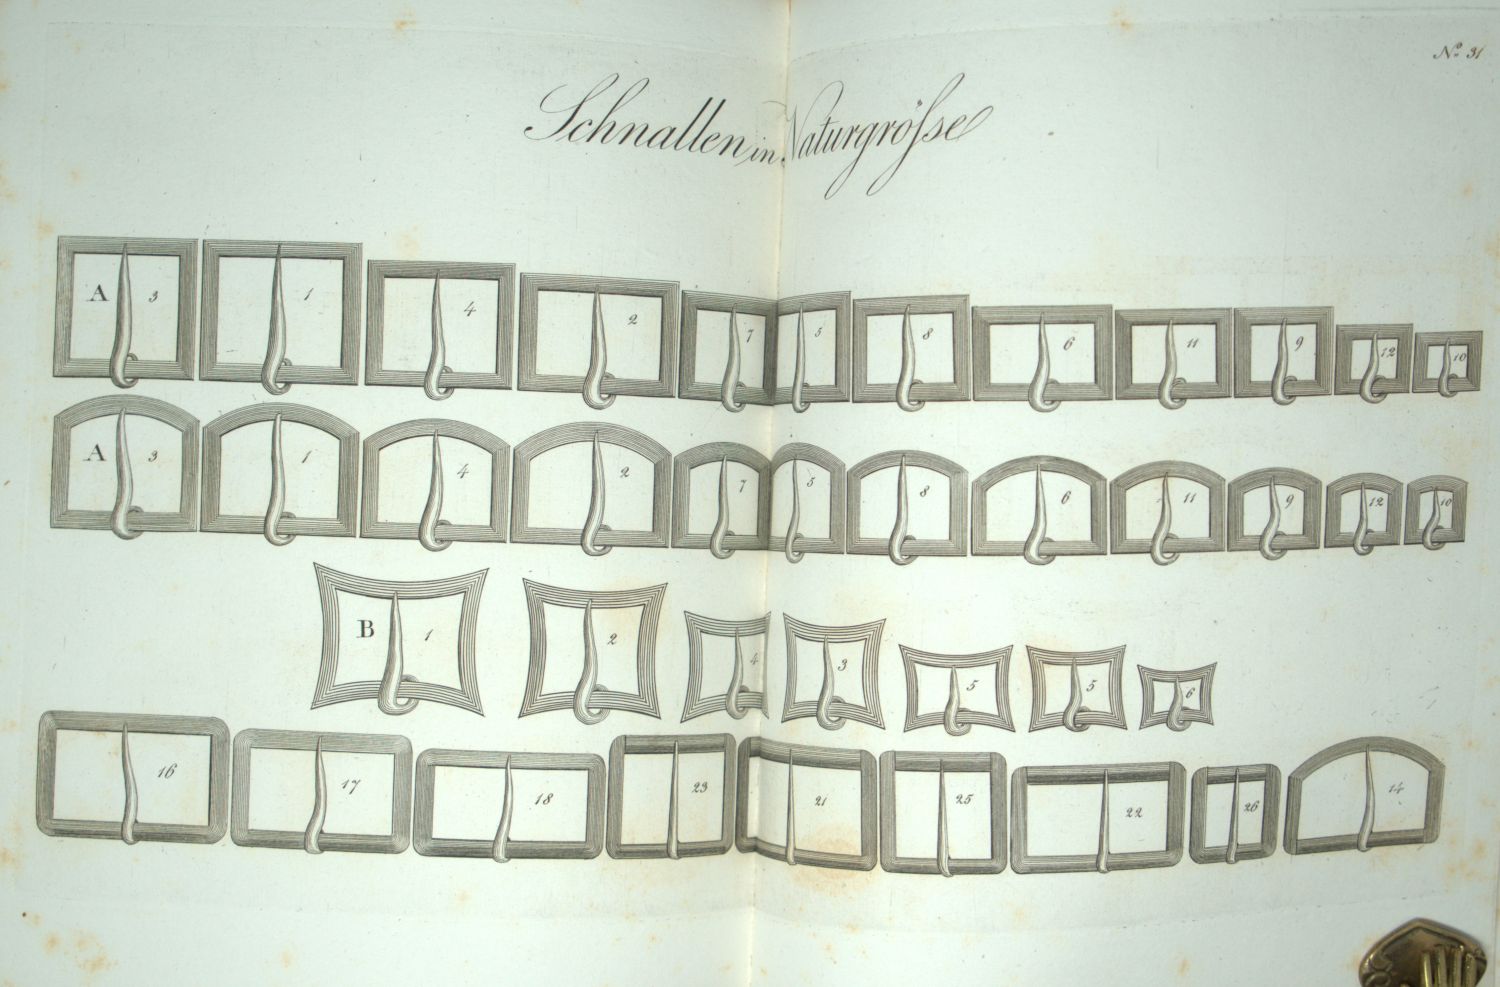 No. 31
Schnallen in Naturgrösse
A 3 1 4 2 7 5 8 6 11 9 12 10
A 3 1 4 2 7 5 8 6 11 9 12 10
B 1 2 4 3 5 5 6
16 17 18 23 21 25 22 26 14